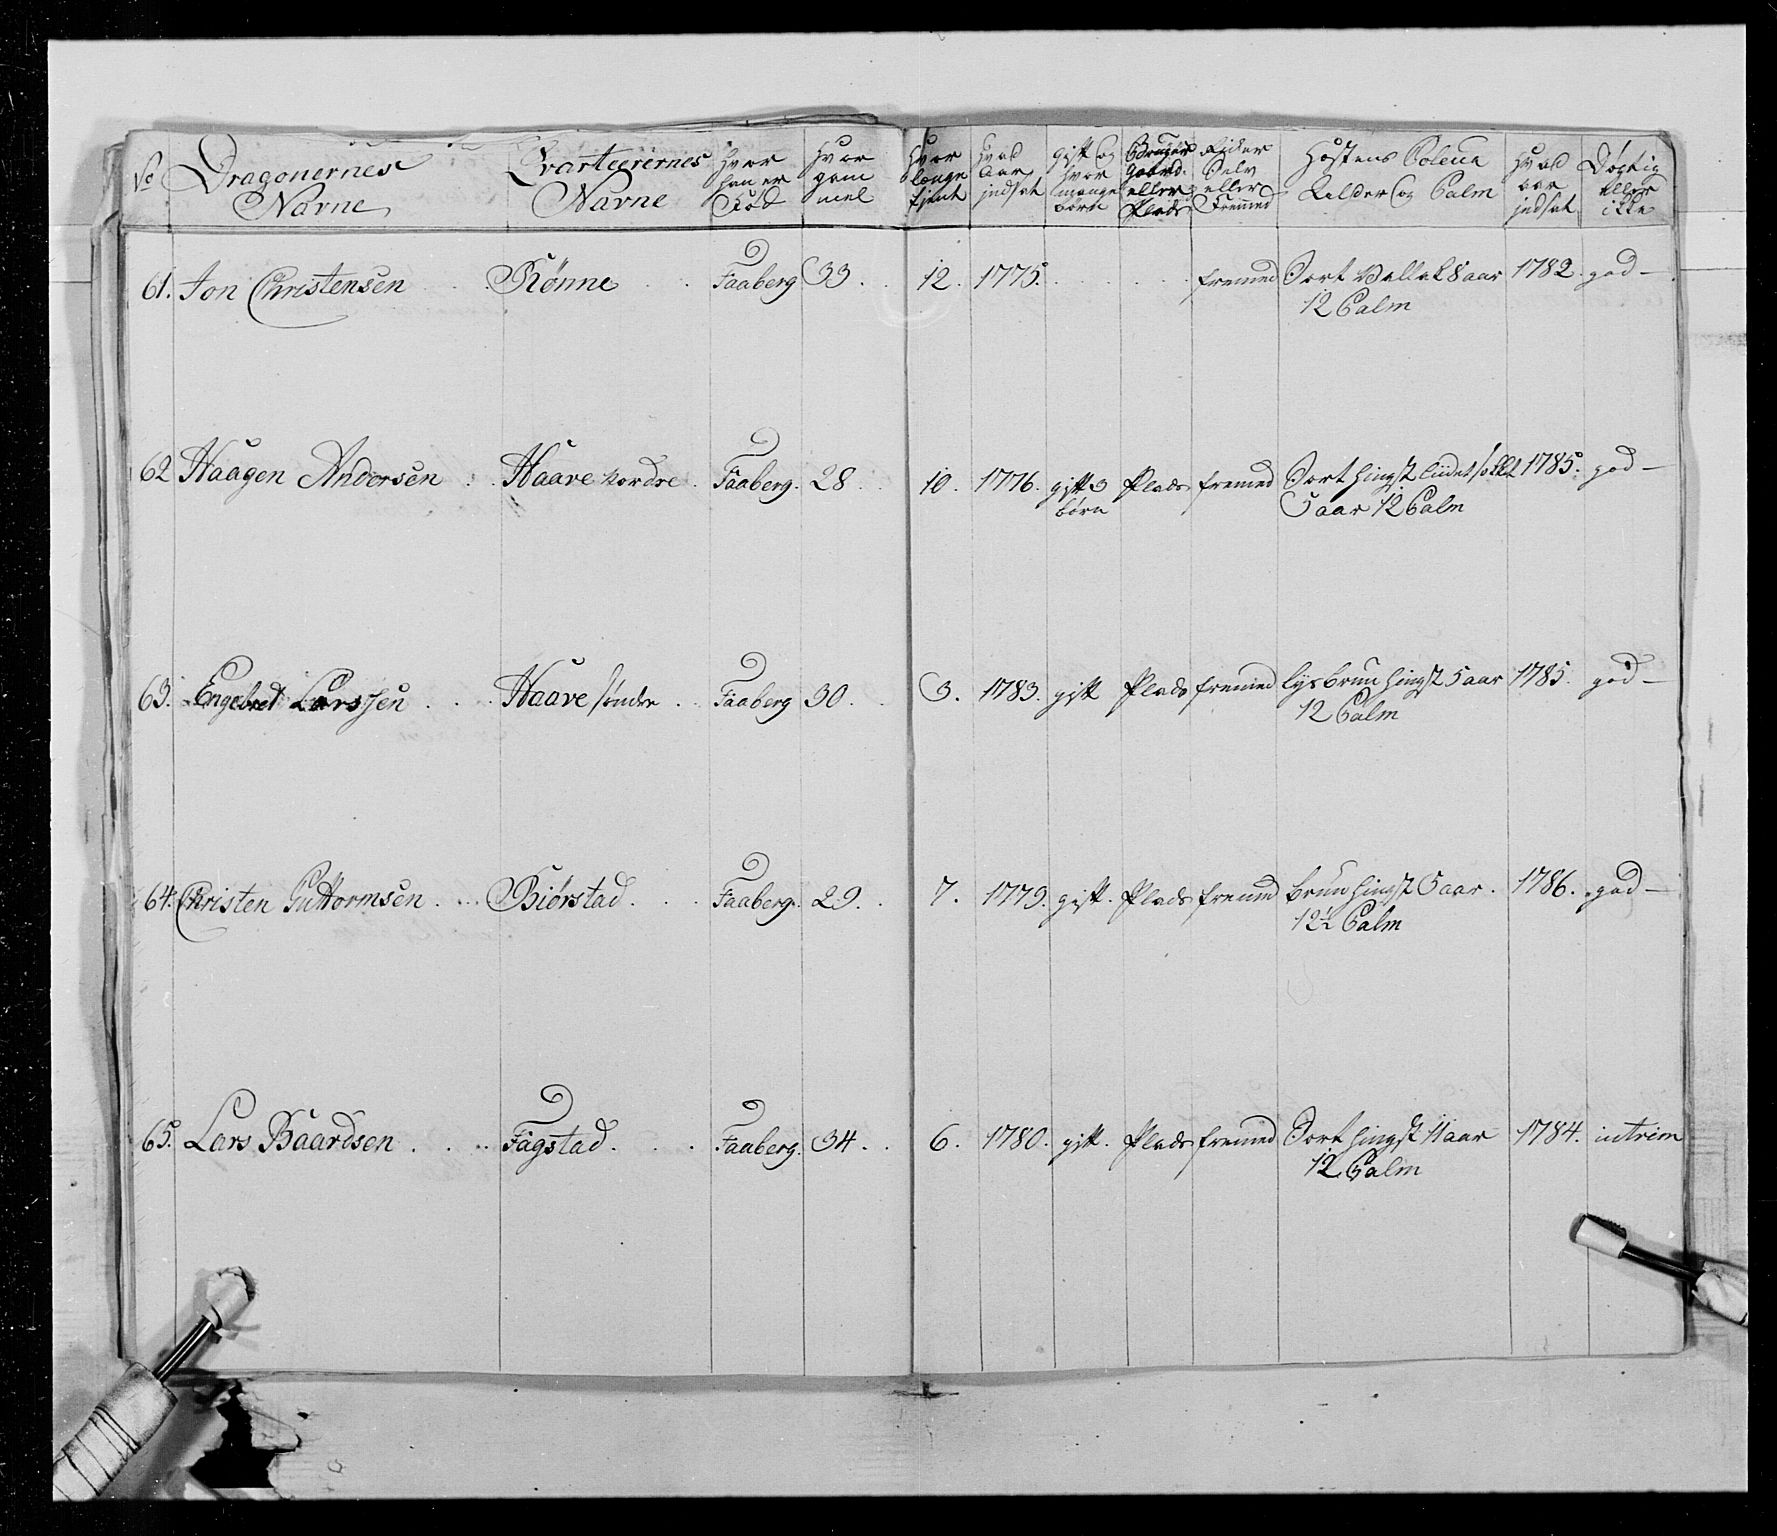 No Dragonernes Navne
Qvarteerernes Navne
Hvor han er Fød
Hvor gammel
Hvor længe tjent
Hvad Aar indsat
gift og hvor mange børn
Bruger Gaard eller Plads
Rider Selv eller Fremmed
Hæstens Coleur Alder og Palm
Hvad aar indsat
Døgtig eller ikke
61. Jon Christensen . . Rönne . . Faaberg 33 . . 12. 1775. . . . . fremed Sort Vallak 8 aar 1782. god —
12 Palm
62 Haagen Andersen . . Haave Nordre . Faaberg. 28. 10. 1776. gift 3 Plads fremed Sort hingst 1785. god —
børn 5 aar 12 Palm
63. Engebret Larssen . . . Haave søndre . . Faaberg 30. . 3. 1783. gift Plads fremed lysbrun hingst 5 aar 1785. god —
12 Palm
64. Christen Guttormsen . . . Biørstad. . . Faaberg. 29. . 7. 1779. gift. Plads fremed brun hingst 5 aar. 1786. god —
12½ Palm
65. Lars Baardsen . . . . Fagstad. . . Faaberg. 34. . 6. 1780. gift. Plads fremed Sort hingst 11 aar 1784. intrim
12 Palm